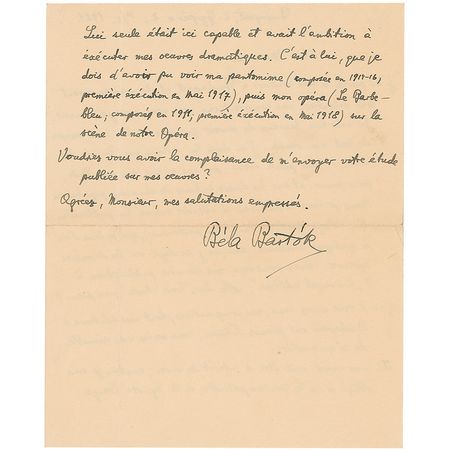 Lui seule était ici capable et avait l'ambition à
exécuter mes œuvres dramatiques. C'est à lui, que je
dois d'avoir pu voir ma pantomime (composée en 1915-16,
première éxécution en Mai 1917), puis mon opéra (Le Barbe-
bleu; composée en 1911, première éxécution en Mai 1918) sur la
scène de notre Opéra.
Voudriez vous avoir la complaisance de m'envoyer votre étude
publiée sur mes œuvres?
Agréez, Monsieur, mes salutations empressés.
Béla Bartók